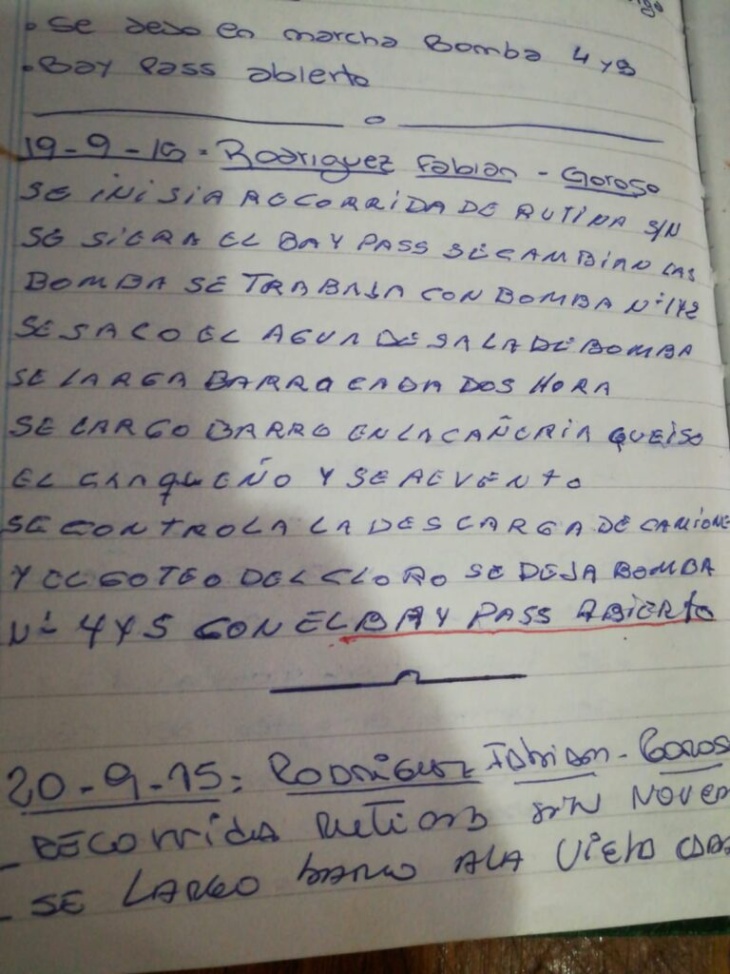 • Se dejo en marcha Bomba 4 y 5
• Bay Pass abierto
19-9-15 - Rodriguez Fabian - Goroso
SE INISIA RECORRIDA DE RUTINA S/N
SE SIERA EL BAY PASS SE CAMBIAN LAS
BOMBA SE TRABAJA CON BOMBA Nº 1Y2
SE SACO EL AGUA DE SALA DE BOMBA
SE LARGA BARRO CADA DOS HORA
SE LARGO BARRO EN LA CAÑERIA QUE ISO
EL CHAQUEÑO Y SE REVENTO
SE CONTROLA LA DESCARGA DE CAMIONE
Y EL GOTEO DEL CLORO SE DEJA BOMBA
Nº 4Y5 CON EL BAY PASS ABIERTO
20-9-15: RODRIGUEZ Fabian - Goros
- RECORRIDA RUTINA SIN NOVE
- SE LARGO BARRO A LA VIEJA CADA